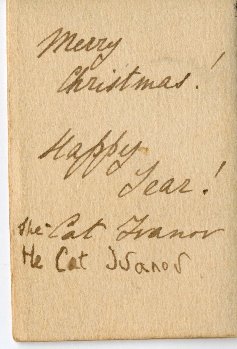 Merry
Christmas!
Happy
Year!
The Cat Ivanov
He Cat Ivanov